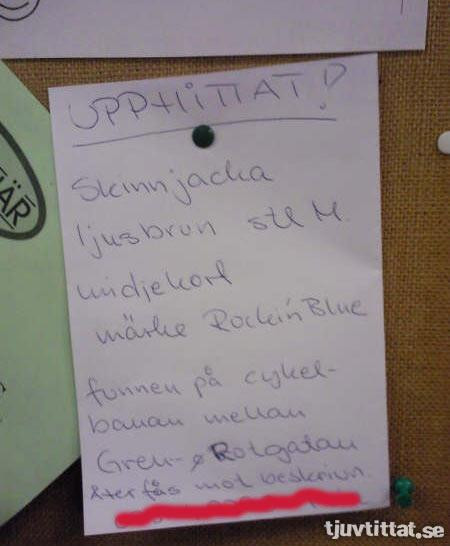 UPPHITTAT!
Skinnjacka
ljusbrun stl M.
midjekort
märke Rockin'Blue
funnen på cykel-
banan mellan
Gren- o Rotgatan
återfås mot beskrivn.
ÄR
tjuvtittat.se